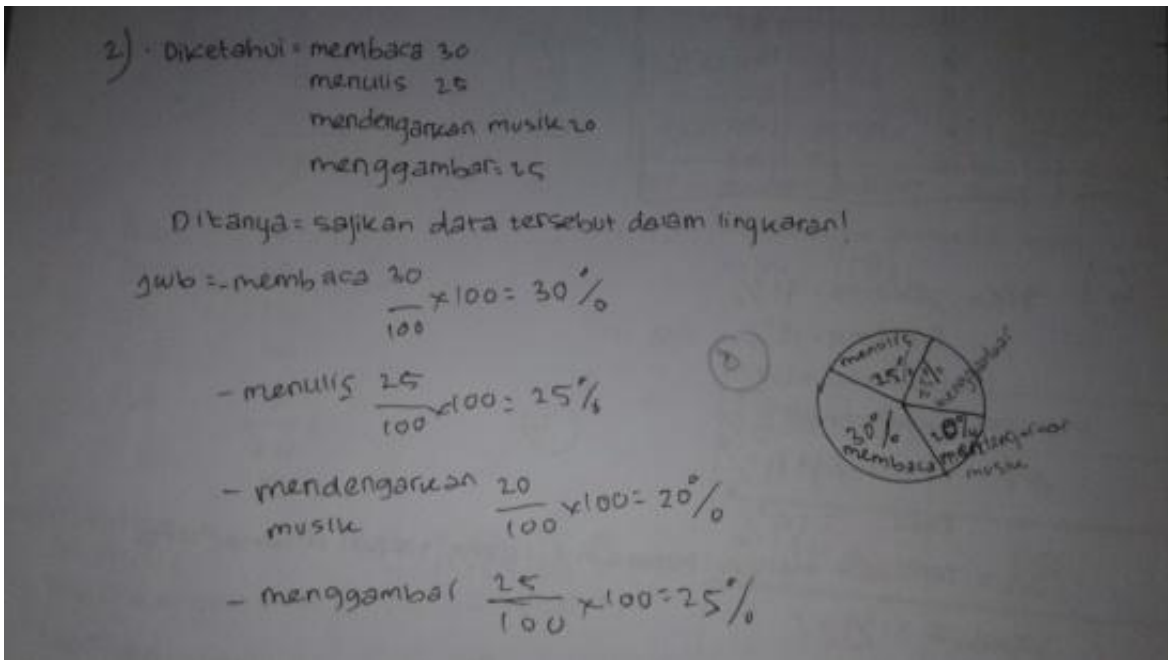 2) . Diketahui = membaca 30
menulis 25
mendengarkan musik 20
menggambar = 25
Ditanya = sajikan data tersebut dalam lingkaran!
jwb = - membaca 30/100 x 100 = 30%
- menulis 25/100 x 100 = 25%
- mendengarkan musik 20/100 x 100 = 20%
- menggambar 25/100 x 100 = 25%
8
menulis
25%
25%
menggambar
30%
membaca
20%
mendengarkan
musik